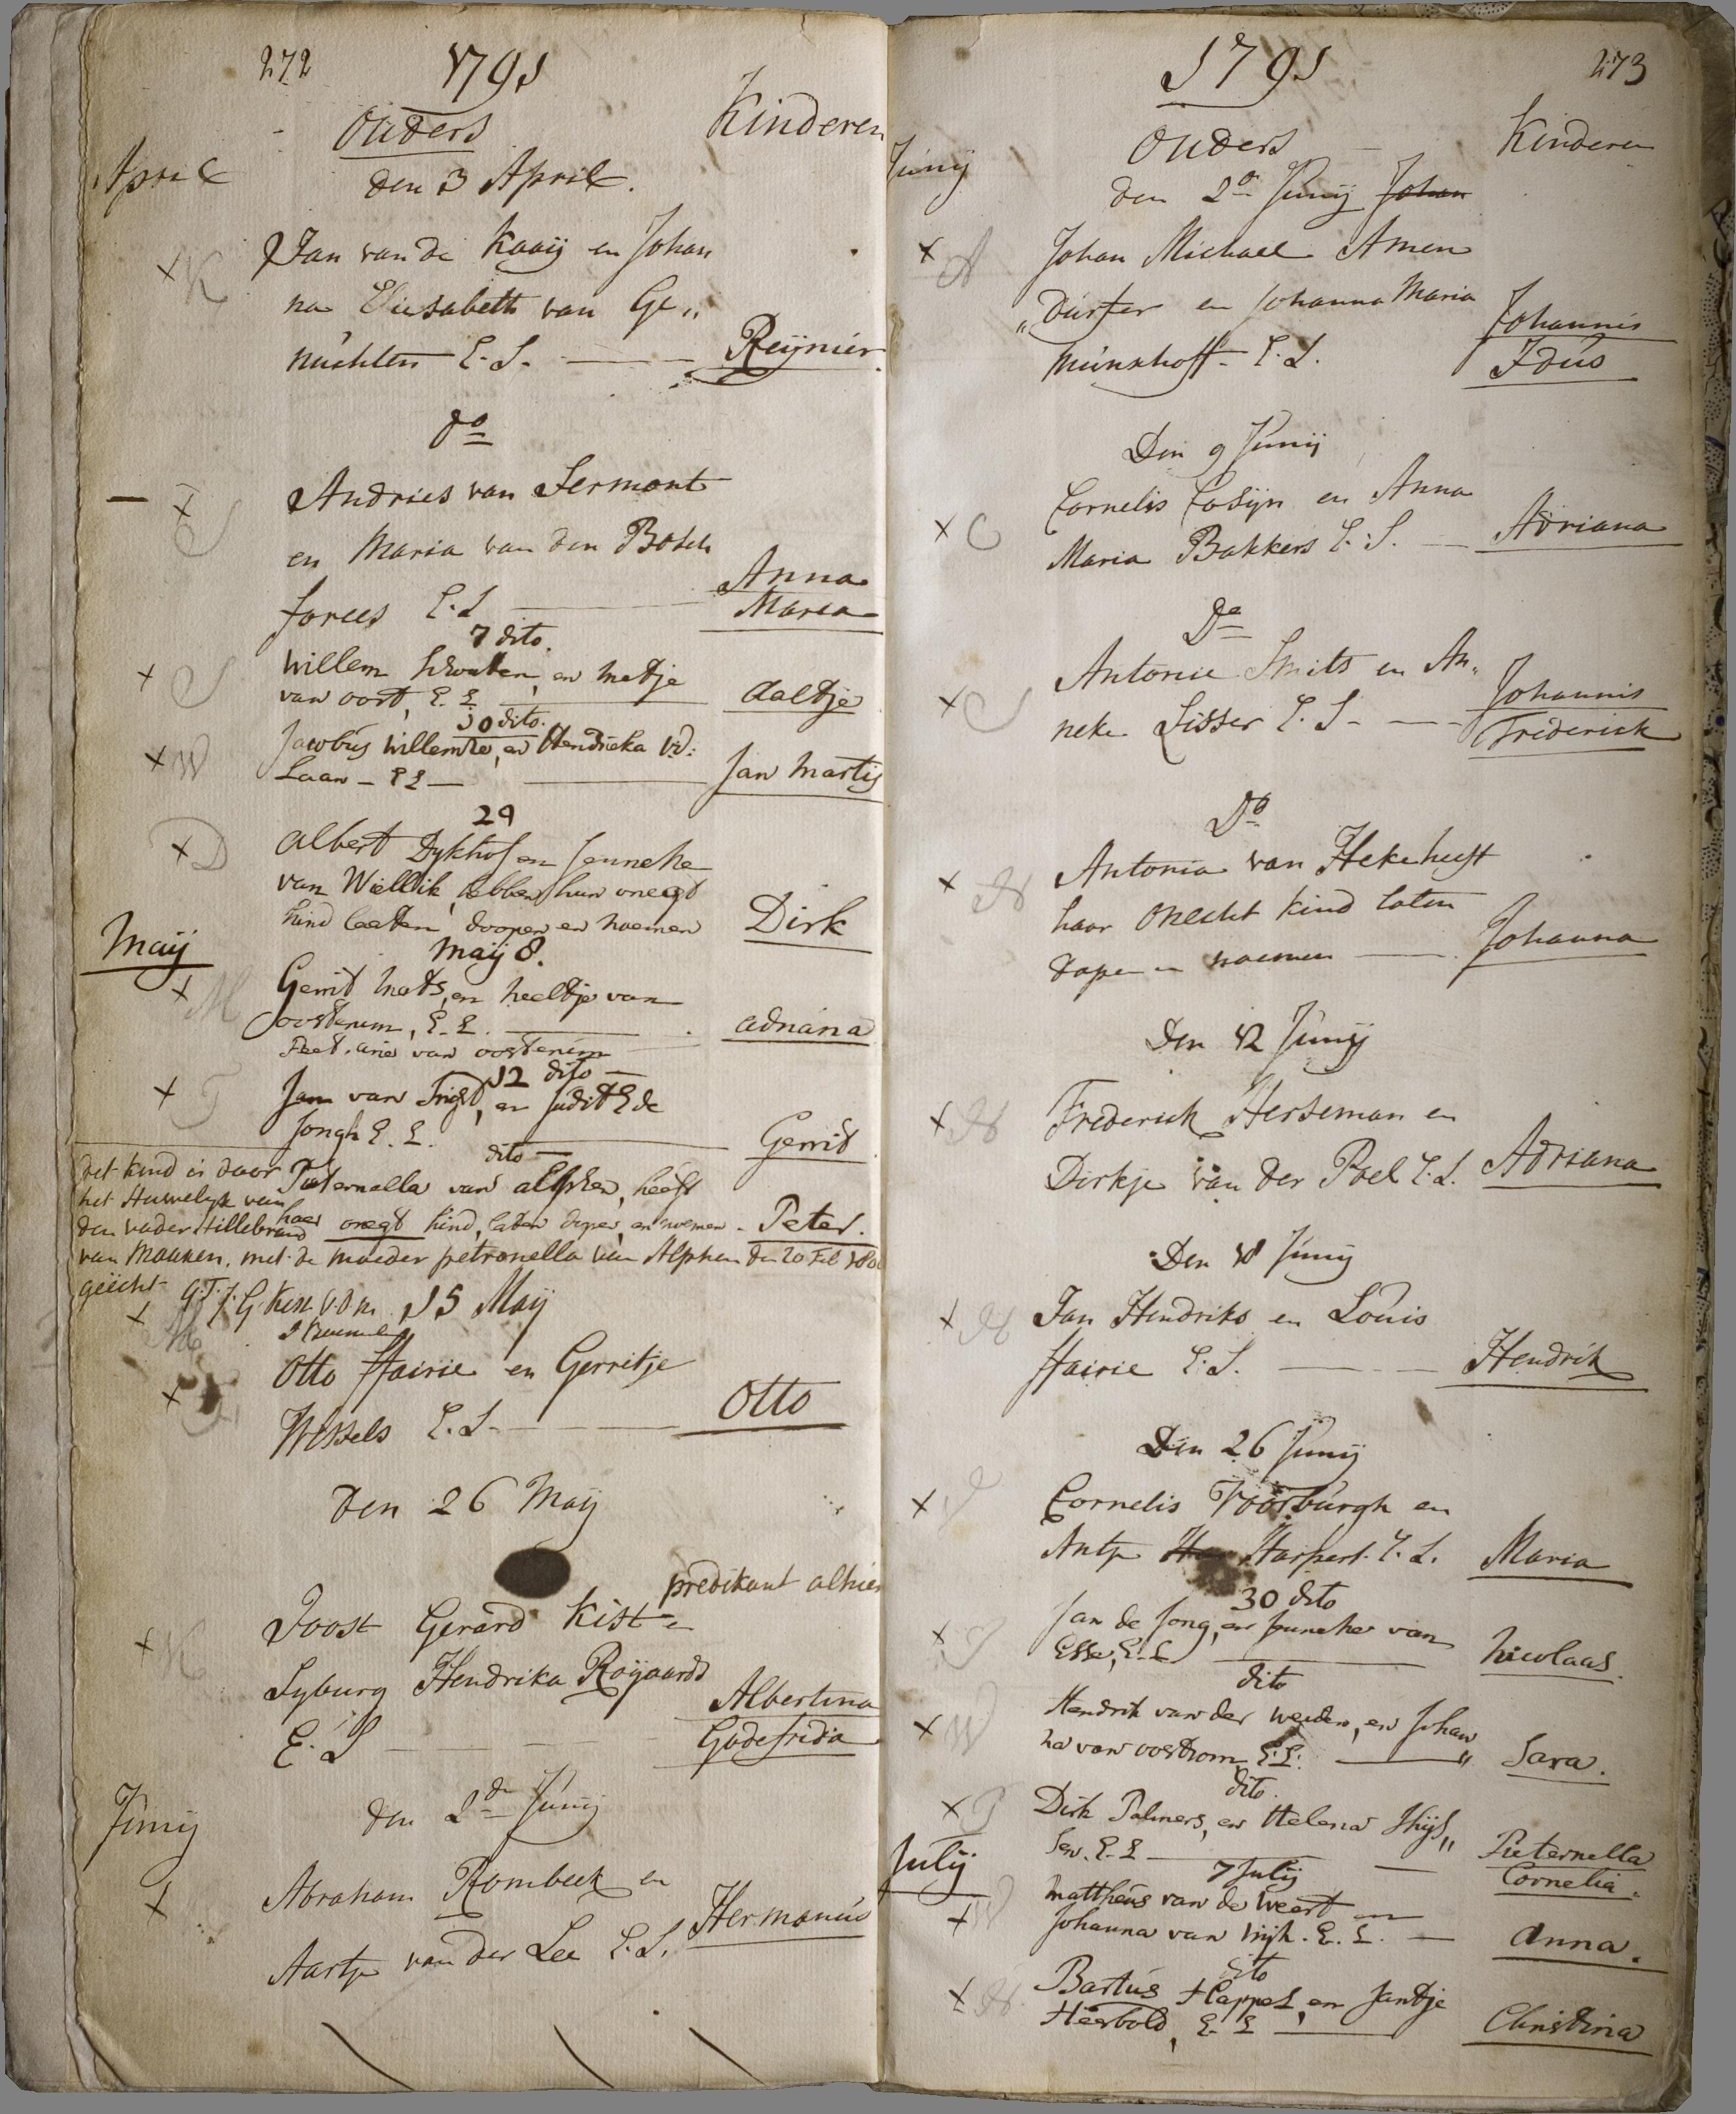 272
1791
Ouders Kinderen
April den 3 April.
Jan van de Kaaij en Johan
na Elisabeth van Ge„
nuchten E. L. Reijnier
do
Andries van Sermont
en Maria van den Bosch
forees E. L Anna
Maria
7 dito.
Willem en metje
van oort, E. E aaltje
10 dito.
Jacobus Willemse, en Hendrieka vd:
Laan - E E - Jan Martij
29
albert Dykhof en Jenneke
van Wiellik, hebben hun onegt
kind laeten doopen en noemen Dirk
Maij Maij 8.
Gerrit mets, en heeltje van
oosterum, E. E. adriana
Peet. arie van oosterum
12 dito
Jan van Trigt, en Judith de
Jongh E. E. Gerrit
dito
Pieternella van alphen, heeft
haer onegt kind, laten dopen, en noemen - Peter.
dit kind is door
het Huwelyk van
den vader Hillebrand
van Maanen, met de moeder petronella van Alphen den 20 Feb 180
geëcht G.T. J. G. Kist V.D.M.
15 Maij
Otto ffairie en Gerritje
Wessels E. L. Otto
den 26 Maij
predikant alhier
Joost Gerard Kist en
Syburg Hendrika Roijaards
E. L Albertina
Godefrida
Junij den 2de Junij
Abraham Rombeek en
Aartje van der Lee E. L. Hermanus
1791
273
Ouders Kinderen
Junij den 2de Junij Johan
Johan Michael Amen
„durfer en Johanna Maria
Munkhoff E. L. Johannis
Idus
Den 9 Junij
Cornelis Cosijn en Anna
Maria Bakkers E. L. Adriana
Do
Antonie Smits en An„
neke Lisser E. L. Johannis
Frederick
Do
Antonia van Hekeheest
haar onecht kind laten
dopen en noemen Johanna
Den 12 Junij
Frederick Herseman en
Dirkje van der Poel E. L. Adriana
Den 18 Junij
Jan Hendriks en Louis
ffairie E. L. Hendrik
Den 26 Junij
Cornelis Voorburgh en
Antje Harpert E. L. Maria
30 dito
Jan de Jong, en Janneke van
Esse, E. E Nicolaas.
dito
Hendrik van der weiden, en Johan„
na van oostrom E. E. Sara.
dito.
Dirk Palmers, en Helena Thijs„
sen. E. E Pieternella
Cornelia.
July 7 July
Mattheus van de Weert en
Johanna van Wijk. E. E. Anna.
dito
Bartus Happel, en Jantje
Heerbold, E. E Christina